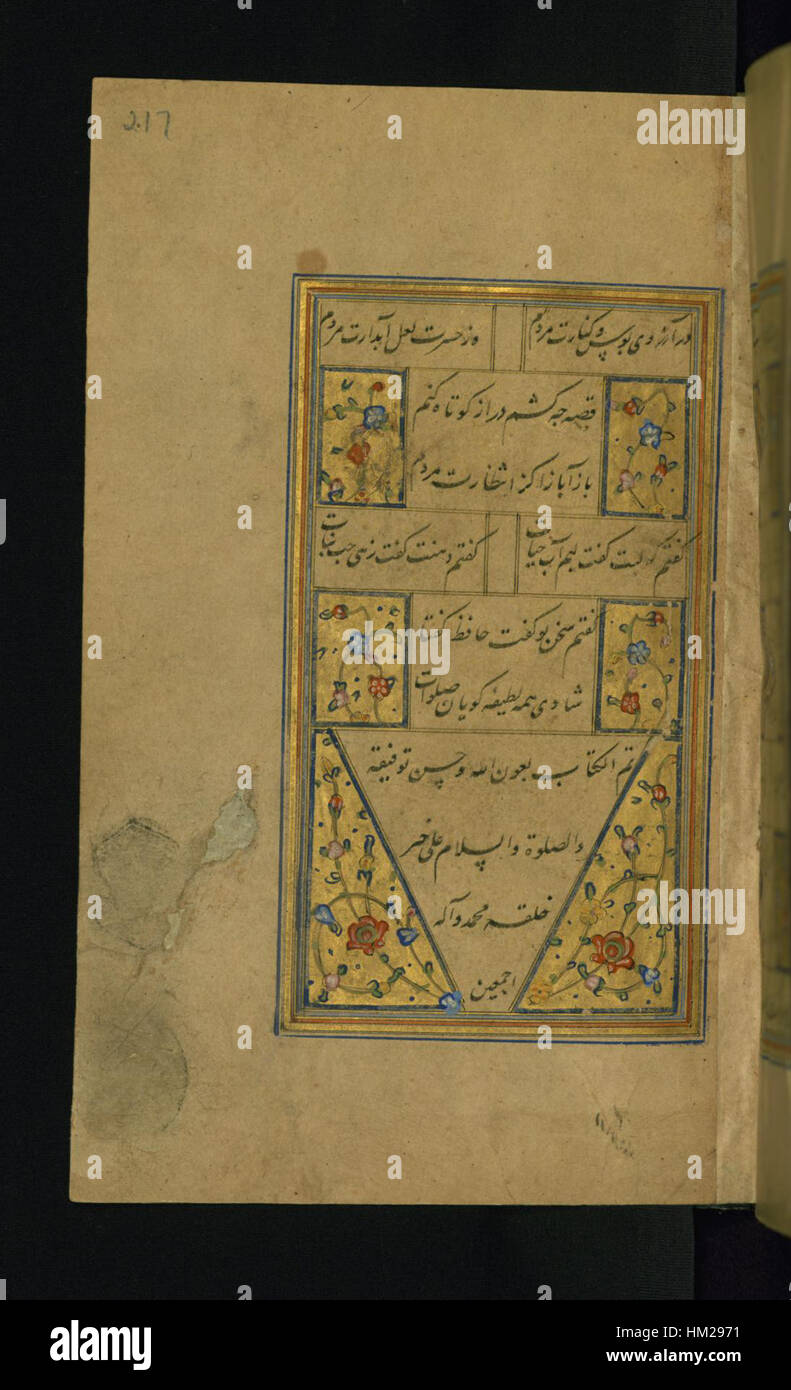 217
در آرزوی بوس و کنارت مردم
وز حسرت لعل آبدارت مردم
قصه چه کشم دراز کوتاه کنم
بازآ بازآ کز انتظارت مردم
گفتم که لبت گفت لبم آب حیات
گفتم دهنت گفت زهی حب نبات
گفتم سخن تو گفت حافظ گفتا
شادی همه لطیفه گویان صلوات
تم الکتاب بعون الله و حسن توفیقه
والصلوة والسلام علی خیر
خلقه محمد وآله
اجمعین
alamy
alamy
Image ID: HM2971
www.alamy.com